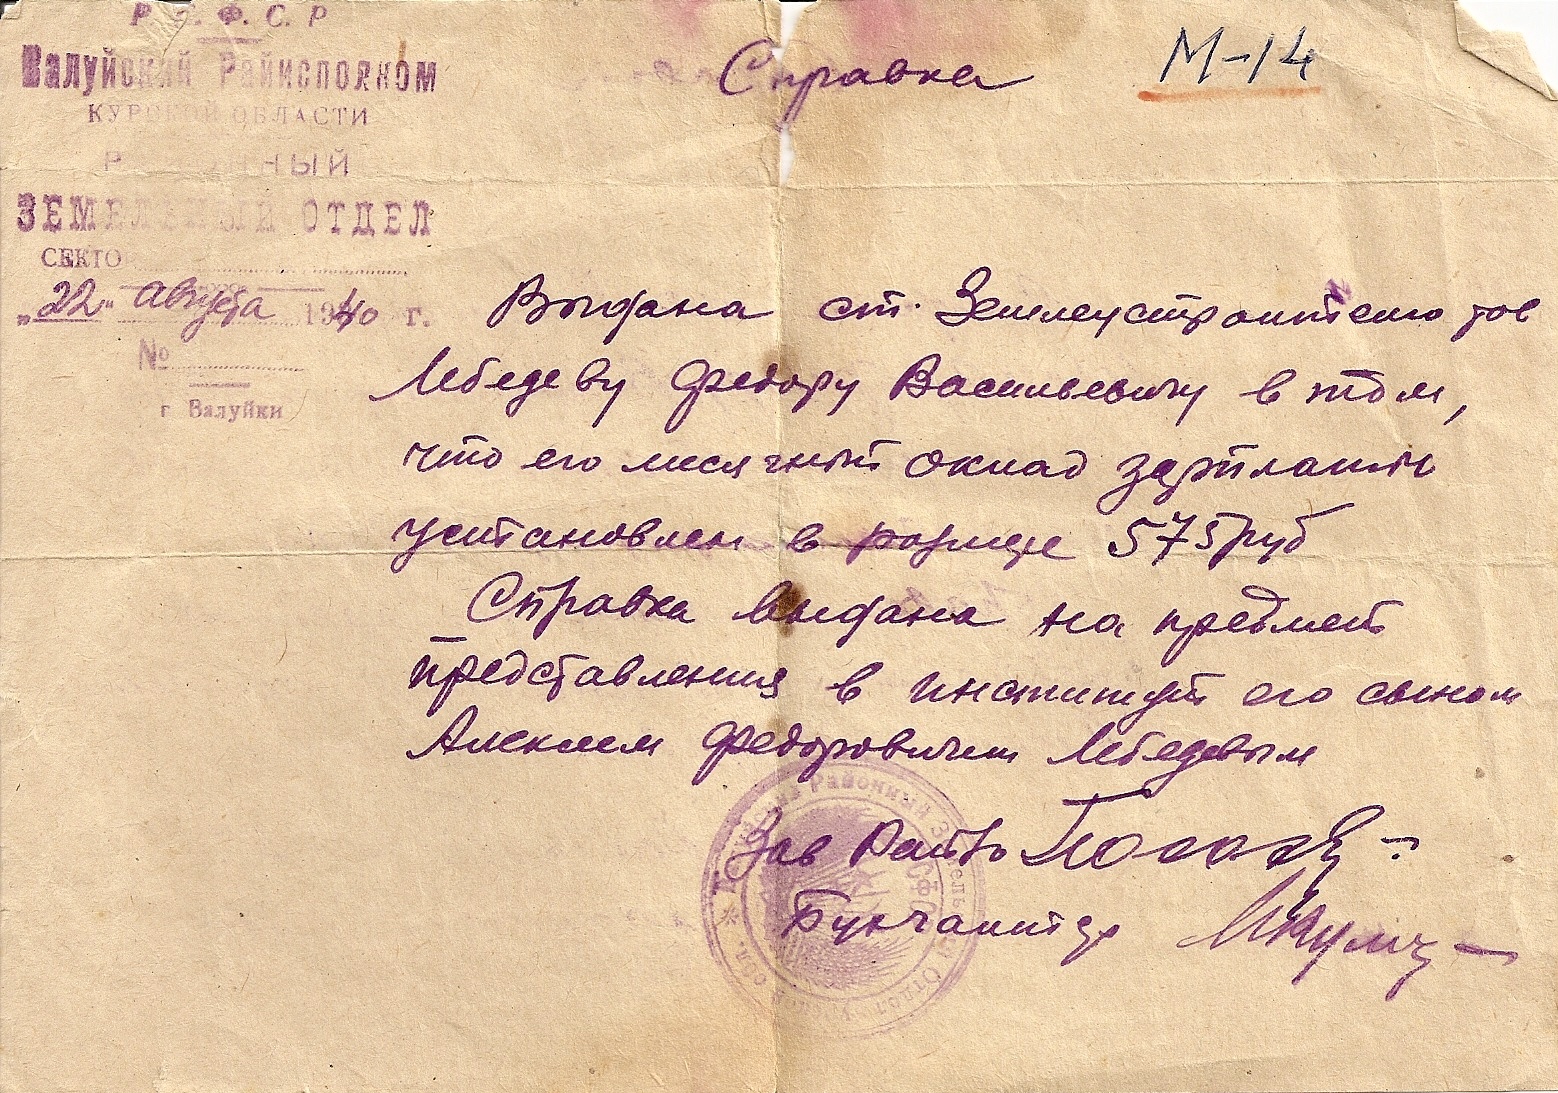 Р. С. Ф. С. Р
Валуйский Райисполком
КУРСКОЙ ОБЛАСТИ
РАЙОННЫЙ
ЗЕМЕЛЬНЫЙ ОТДЕЛ
СЕКТО
„22" августа 1940 г.
№
г Валуйки
Справка
М-14
Выдана ст. Землеустроителю тов
Лебедеву Федору Васильевичу в том,
что его месячный оклад зарплаты
установлен в размере 575 руб
Справка выдана на предмет
представления в институт его сыном
Алексеем Федоровичем Лебедевым
Зав РайЗО
Бухгалтер
Районный Земельный Отдел Курской обл.